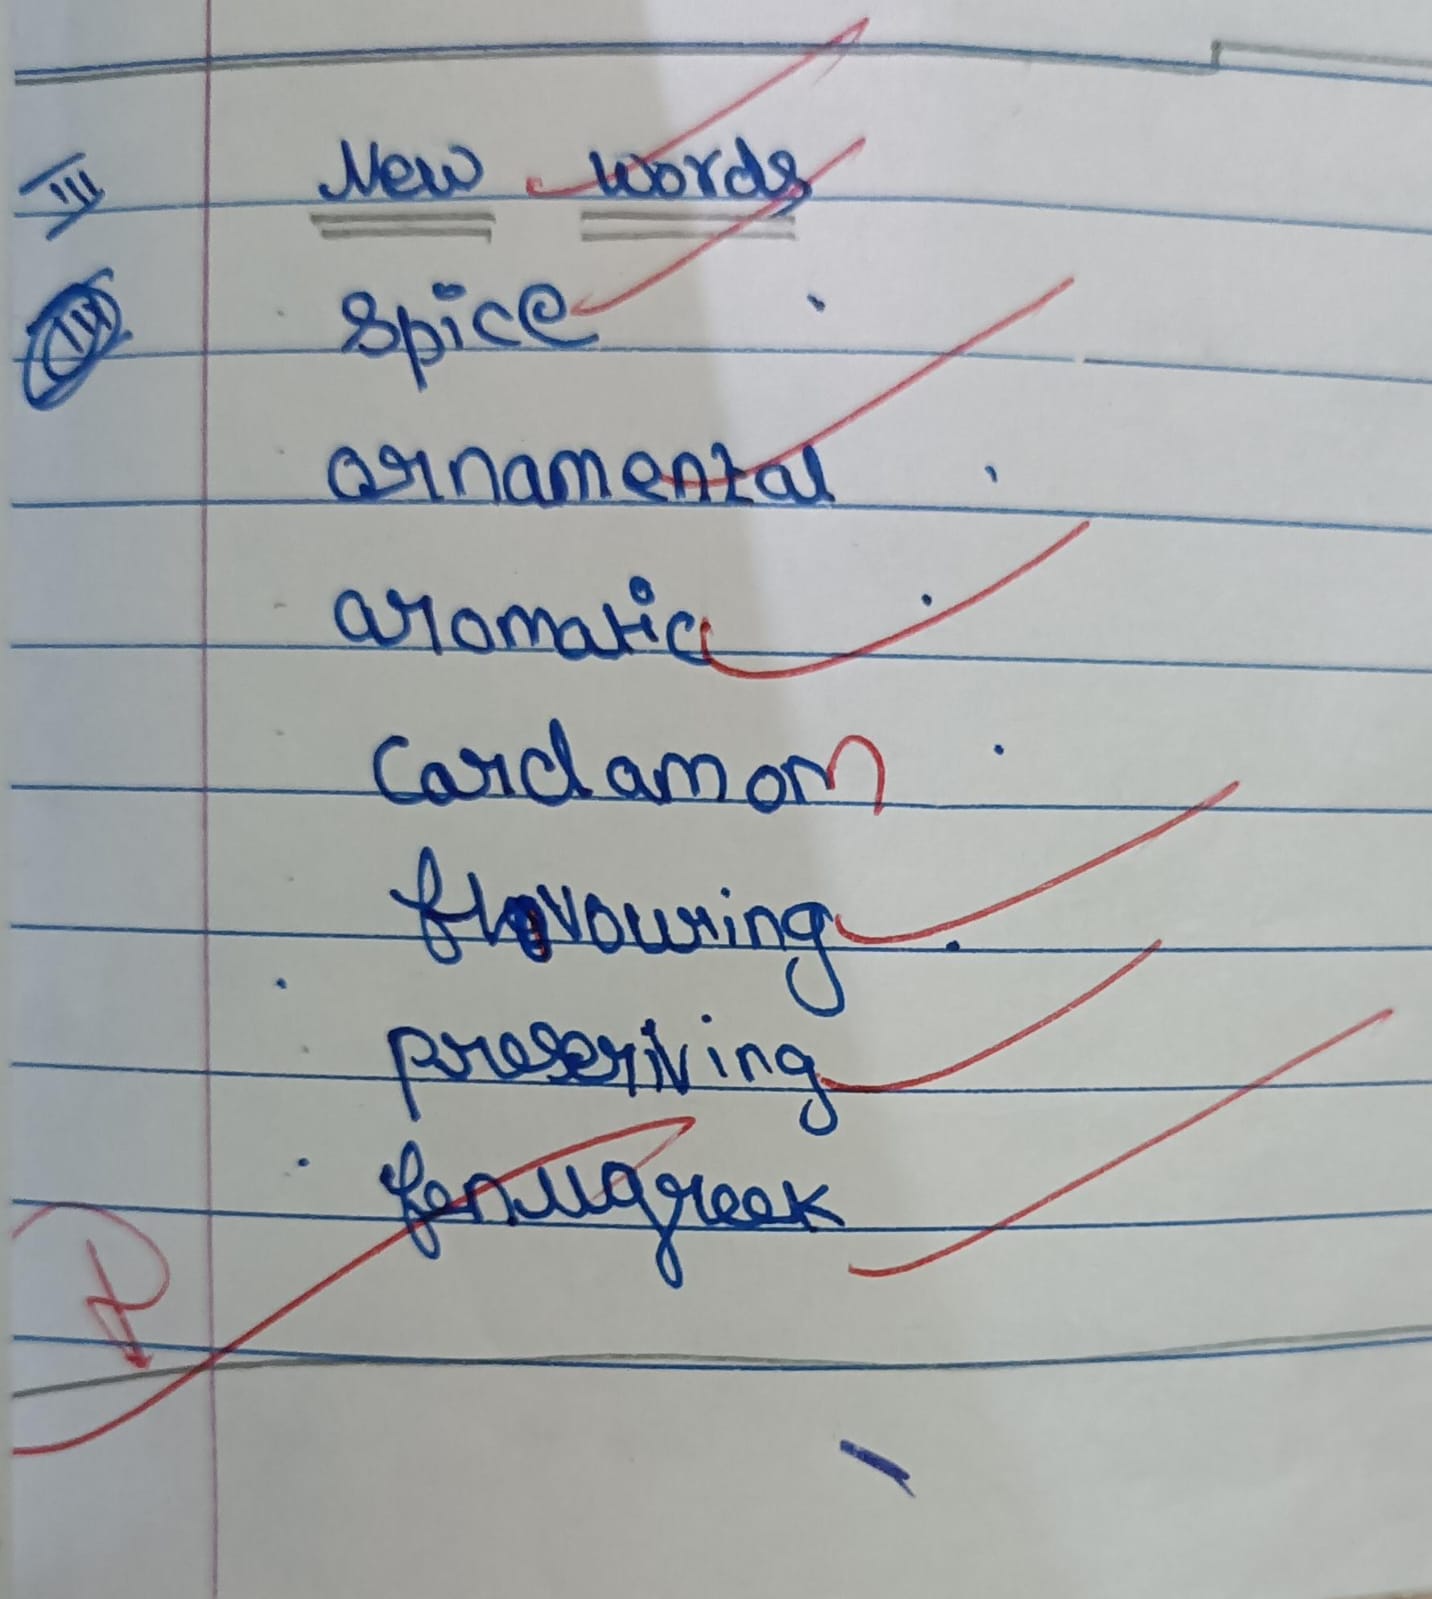 III New words
spice
ornamental
aromatic
cardamom
flavouring
preserving
fenugreek